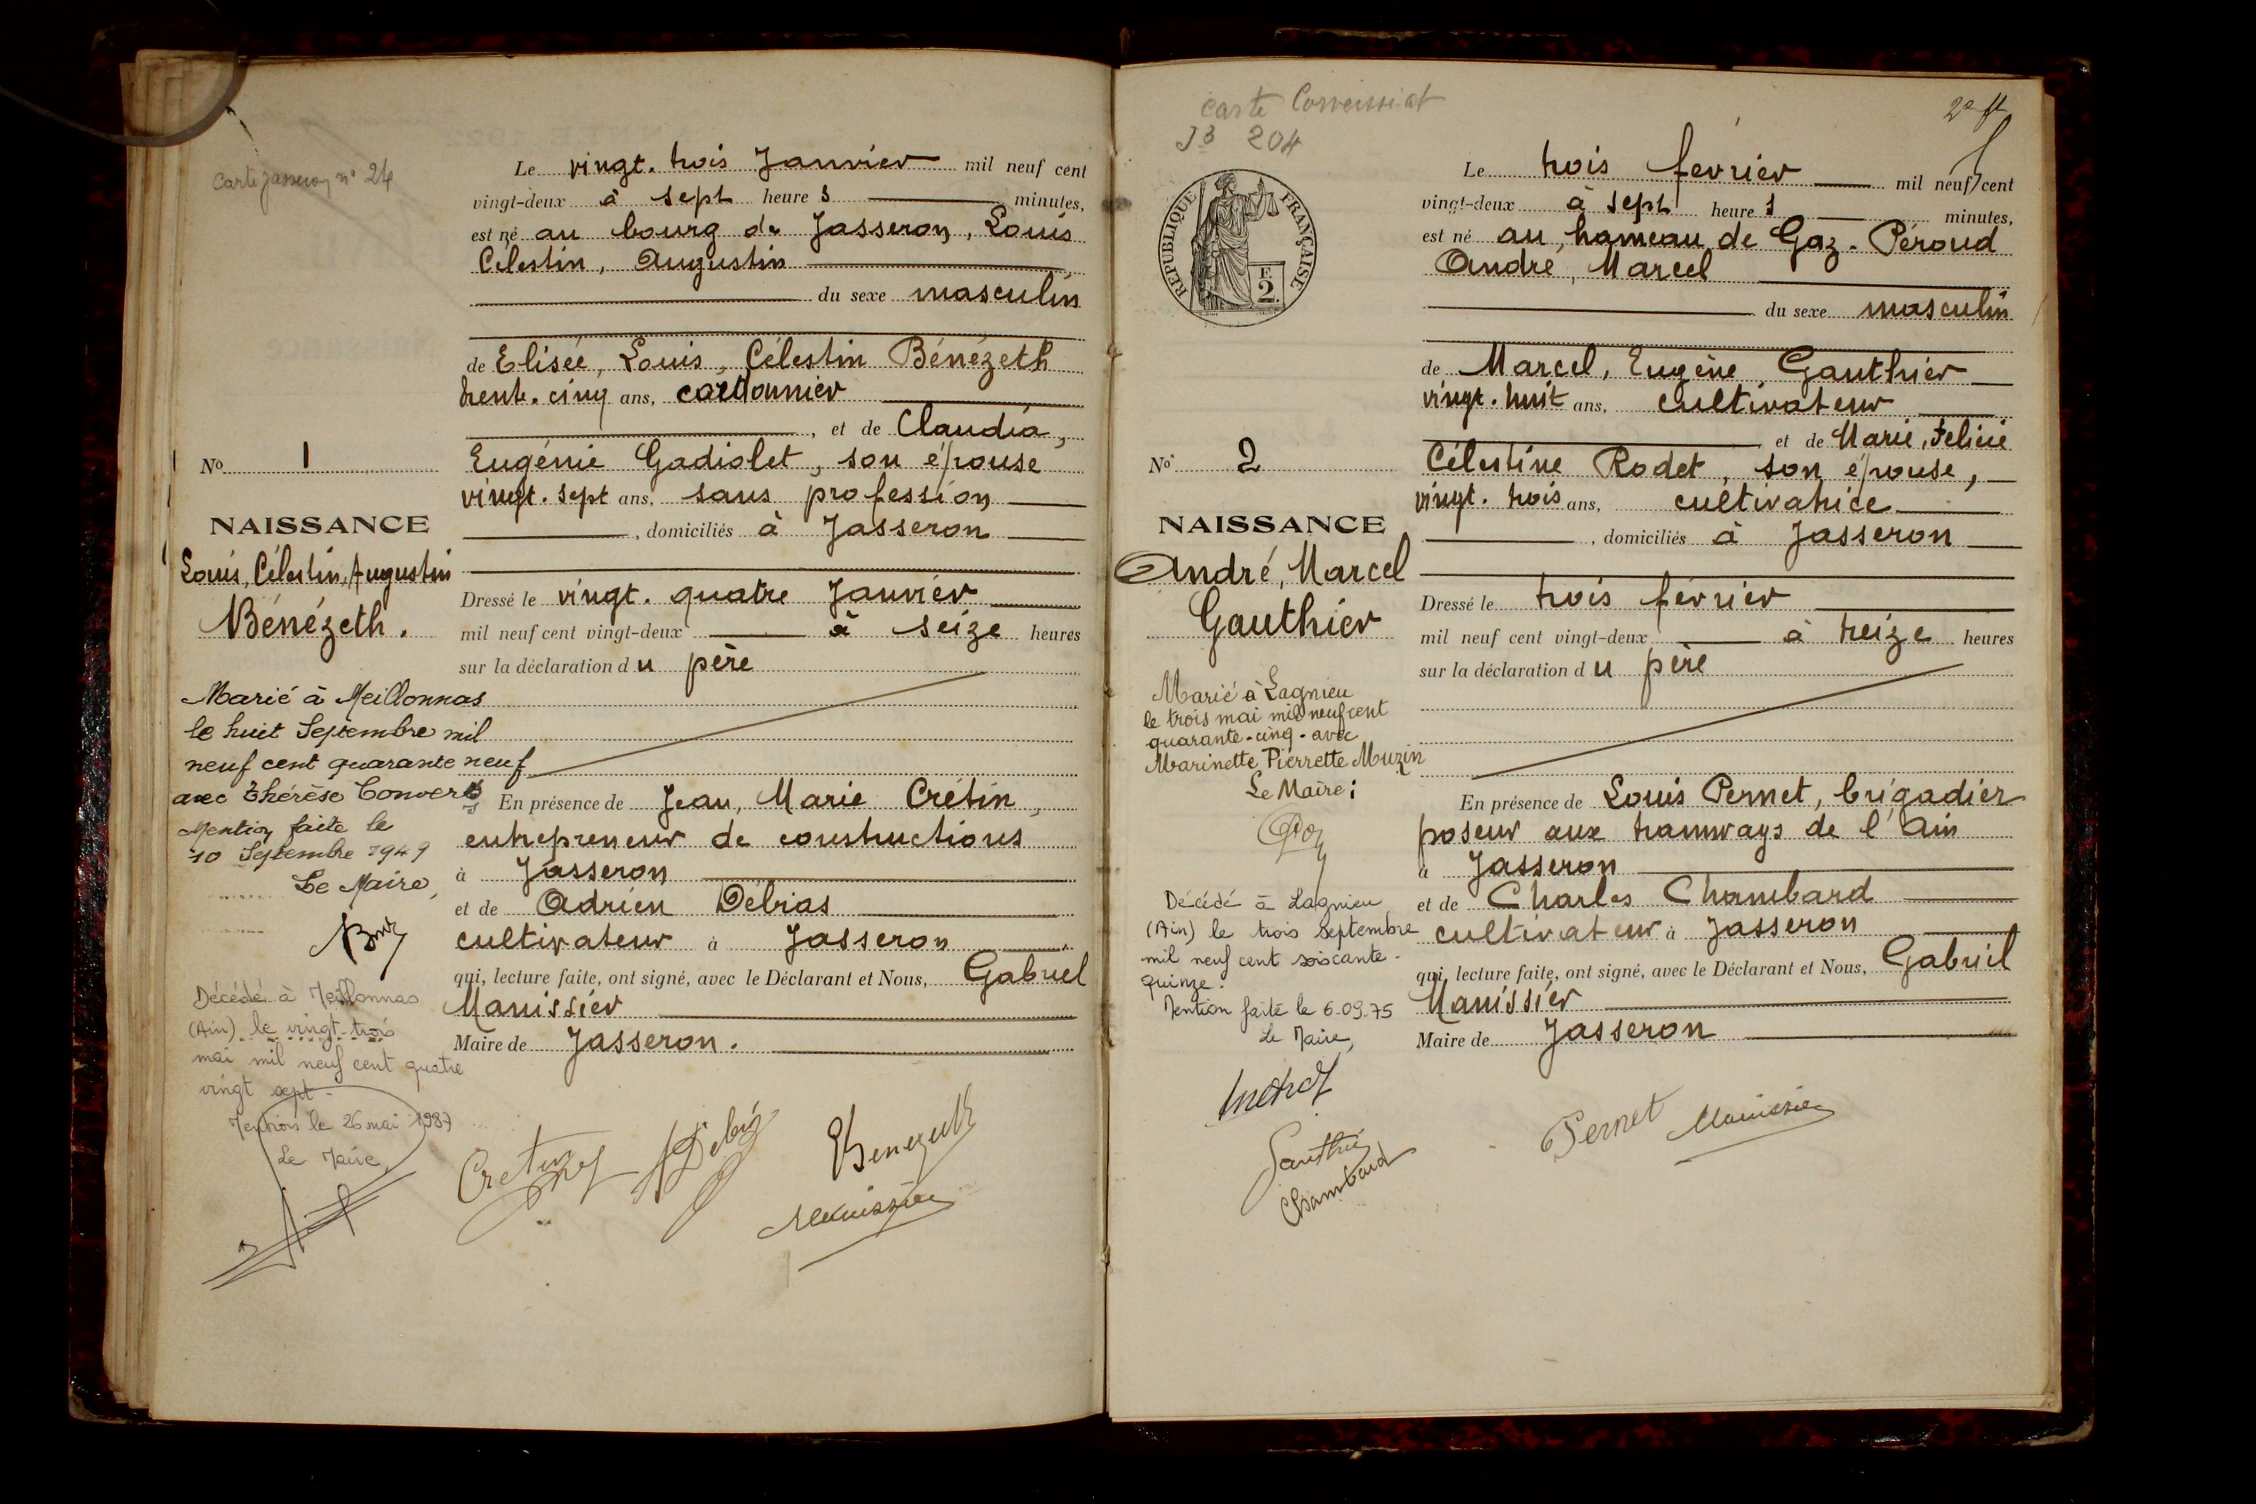 Carte Jasseron n° 24
Le vingt. trois Janvier mil neuf cent
vingt-deux à sept heure s minutes,
est né au bourg de Jasseron, Louis
Célestin, Augustin
du sexe masculin
de Elisée, Louis, Célestin Bénézeth
trente. cinq ans, cantonnier
, et de Claudia,
Eugénie Gadiolet, son épouse
vingt. sept ans, sans profession
, domiciliés à Jasseron
Dressé le vingt. quatre Janvier
mil neuf cent vingt-deux à seize heures
sur la déclaration du père
En présence de Jean, Marie Crétin,
entrepreneur de constructions
à Jasseron
et de Adrien Débias
cultivateur à Jasseron
qui, lecture faite, ont signé, avec le Déclarant et Nous, Gabriel
Manissier
Maire de Jasseron.
No 1
NAISSANCE
Louis, Célestin, Augustin
Bénézeth.
Marié à Meillonnas
le huit Septembre mil
neuf cent quarante neuf
avec Thérèse Convers
Mention faite le
10 Septembre 1949
Le Maire,
Décédé à Meillonnas
(Ain) le vingt-trois
mai mil neuf cent quatre
vingt sept.
Mention le 26 mai 1987
Le Maire,
Cretin
Benezeth
Manissier
Carte Corveissiat
204
REPUBLIQUE FRANÇAISE
E
2
Le trois février mil neuf cent
vingt-deux à sept heure s minutes,
est né au hameau de Gaz. Péroud
André, Marcel
du sexe masculin
de Marcel, Eugène, Gauthier
vingt. huit ans, cultivateur
et de Marie, Felicie
Célestine Rodet, son épouse,
vingt. trois ans, cultivatrice
, domiciliés à Jasseron
Dressé le trois février
mil neuf cent vingt-deux à treize heures
sur la déclaration du père
En présence de Louis Pernet, brigadier
poseur aux tramways de l'Ain
à Jasseron
et de Charles Chambard
cultivateur à Jasseron
qui, lecture faite, ont signé, avec le Déclarant et Nous, Gabriel
Manissier
Maire de Jasseron
No 2
NAISSANCE
André, Marcel
Gauthier
Marié à Lagnieu
le trois mai mil neuf cent
quarante-cinq. avec
Marinette Pierrette Muzin
Le Maire:
Décédé à Lagnieu
(Ain) le trois Septembre
mil neuf cent soixante-
quinze.
Mention faite le 6.09.75
Le Maire,
Gauthier
Chambard
Pernet
Manissier